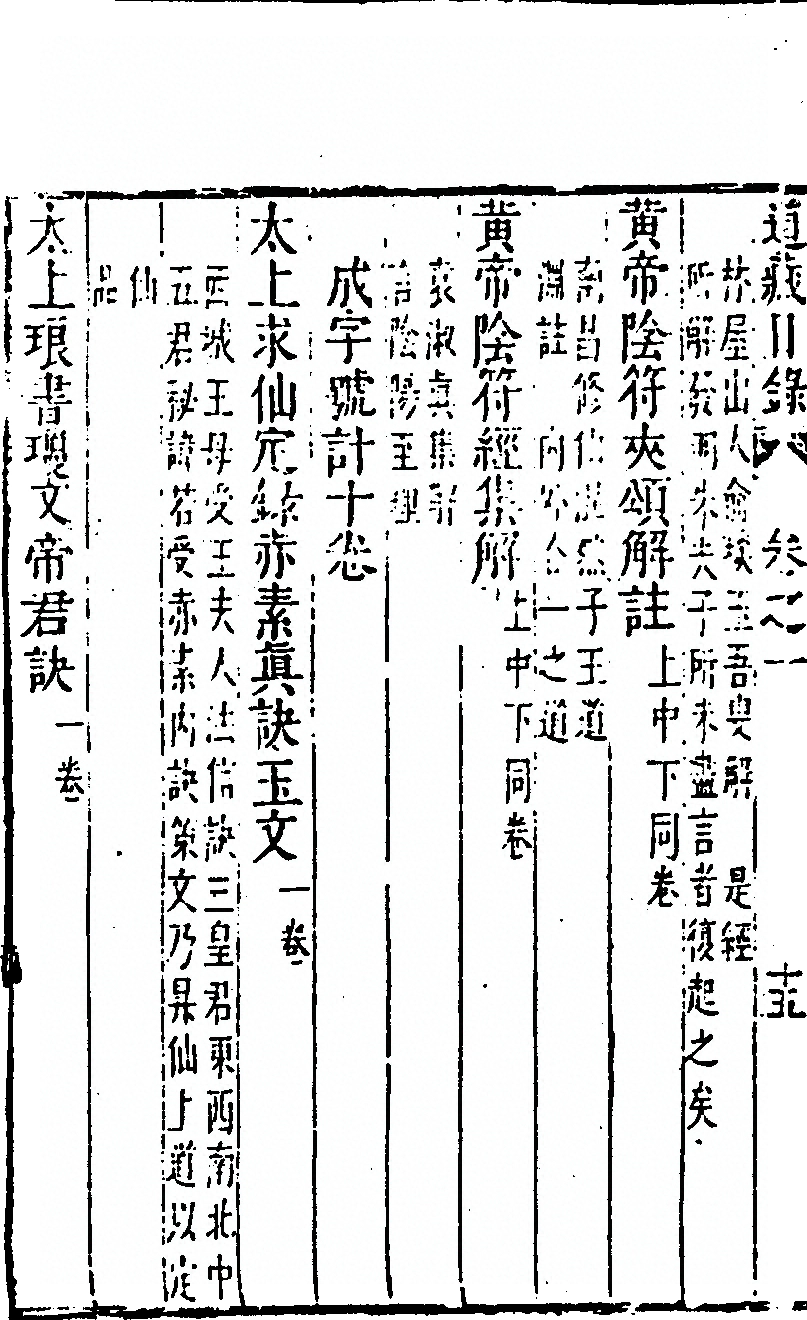 道藏目錄 卷之一 十五
林屋山人俞琰玉吾叟解 是經
所解發明朱夫子所未盡言者復起之矣
黃帝陰符夾頌解註 上中下同卷
南昌修仙混然子王道
淵註 內外合一之道
黃帝陰符經集解 上中下同卷
袁淑真集解
言陰陽至理
成字號計十卷
太上求仙定錄赤素真訣玉文 一卷
西城王母受王夫人法信訣三皇君東西南北中
五君秘諱若受赤素內訣策文乃昇仙上道以定
仙
品
太上琅書瓊文帝君訣 一卷